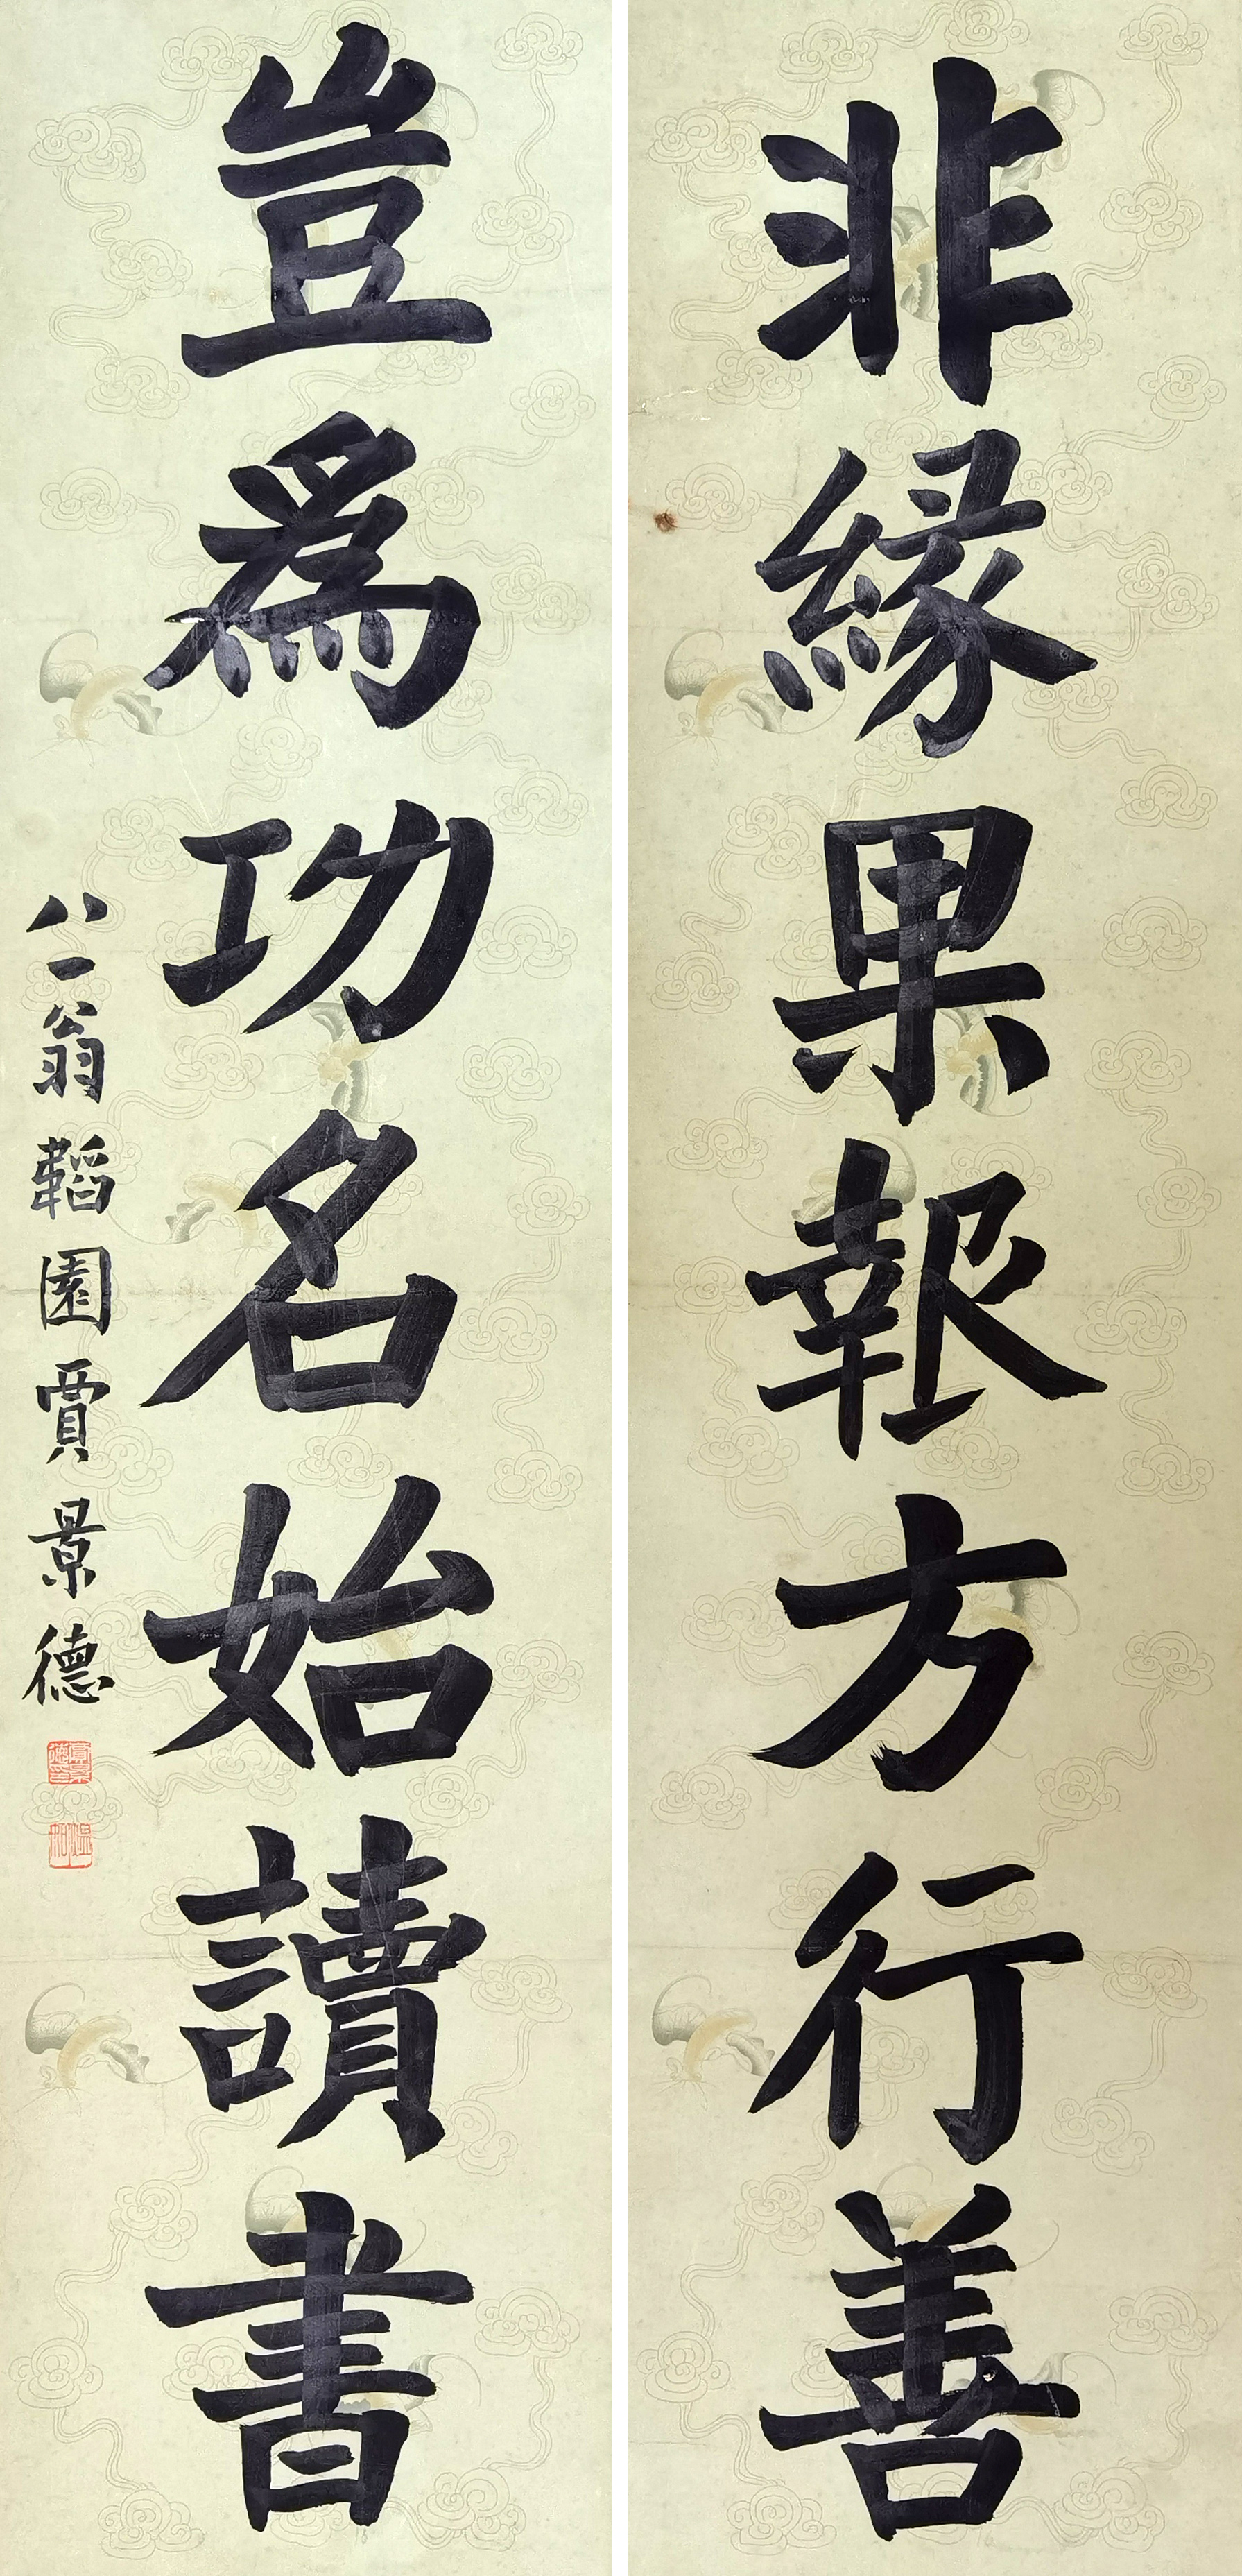 非緣果報方行善
豈爲功名始讀書
八一翁韜園賈景德
賈景德印